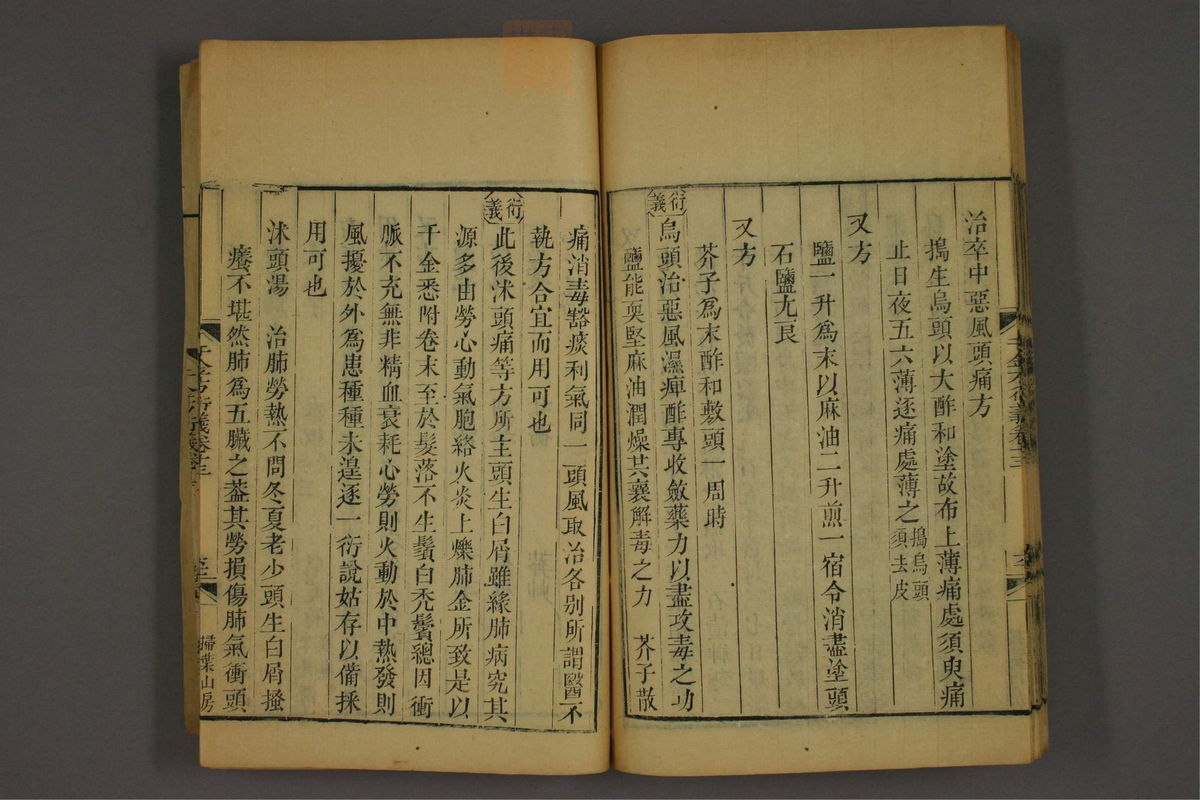 治卒中惡風頭痛方
搗生烏頭以大酢和塗故布上薄痛處須臾痛
止日夜五六薄逐痛處薄之搗烏頭
須去皮
又方
鹽一升爲末以麻油二升煎一宿令消盡塗頭
石鹽尤良
又方
芥子爲末酢和敷頭一周時
衍義
烏頭治惡風濕痺酢專收斂藥力以盡攻毒之功
鹽能耎堅麻油潤燥共襄解毒之力 芥子散
痛消毒豁痰利氣同一頭風取治各別所謂醫不
執方合宜而用可也
衍義
此後沐頭痛等方所主頭生白屑雖緣肺病究其
源多由勞心動氣胞絡火炎上爍肺金所致是以
千金悉附卷末至於髮落不生鬚白禿鬢總因衝
脈不充無非精血衰耗心勞則火動於中熱發則
風擾於外爲患種種未遑逐一衍說姑存以備採
用可也
沐頭湯 治肺勞熱不問冬夏老少頭生白屑搔
癢不堪然肺爲五臟之蓋其勞損傷肺氣衝頭
千金方衍義卷十三
掃葉山房